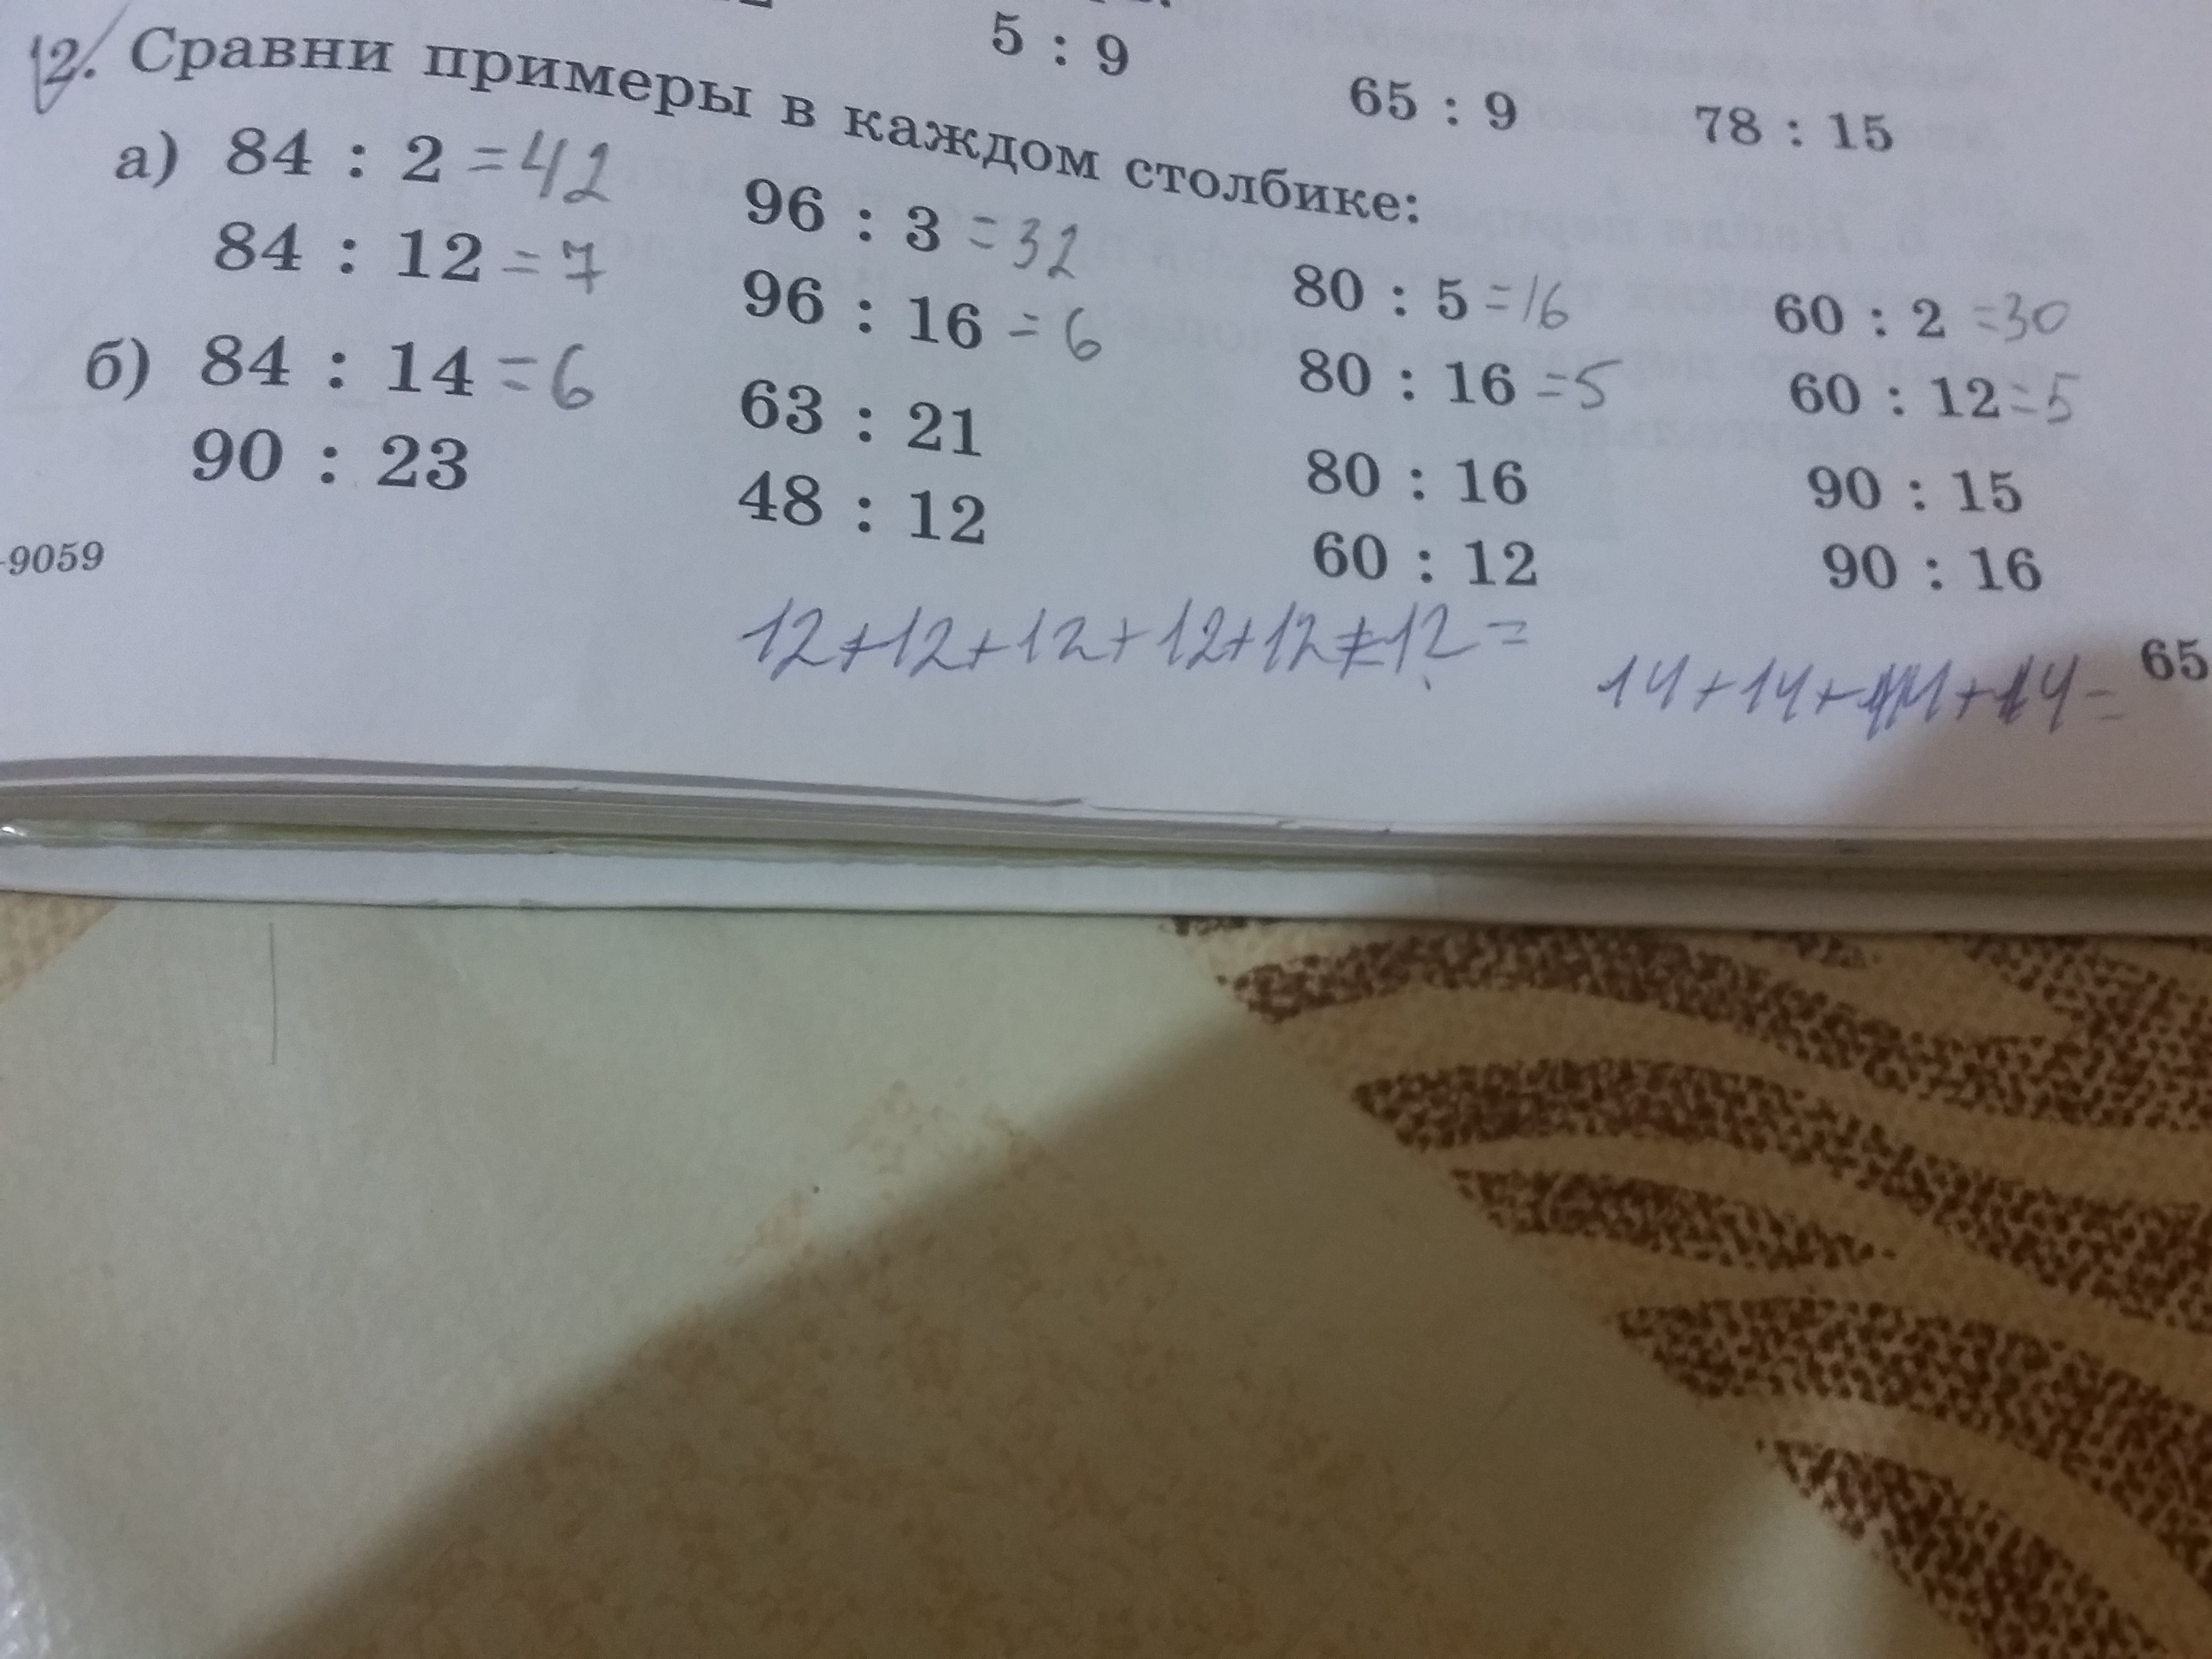 5 : 9
65 : 9
78 : 15
12. Сравни примеры в каждом столбике:
а) 84 : 2 =42
84 : 12 =7
96 : 3 =32
96 : 16 =6
80 : 5 =16
80 : 16 =5
60 : 2 =30
60 : 12 =5
б) 84 : 14 =6
90 : 23
63 : 21
48 : 12
80 : 16
60 : 12
90 : 15
90 : 16
-9059
12+12+12+12+12+12=
14+14+14+14=
65